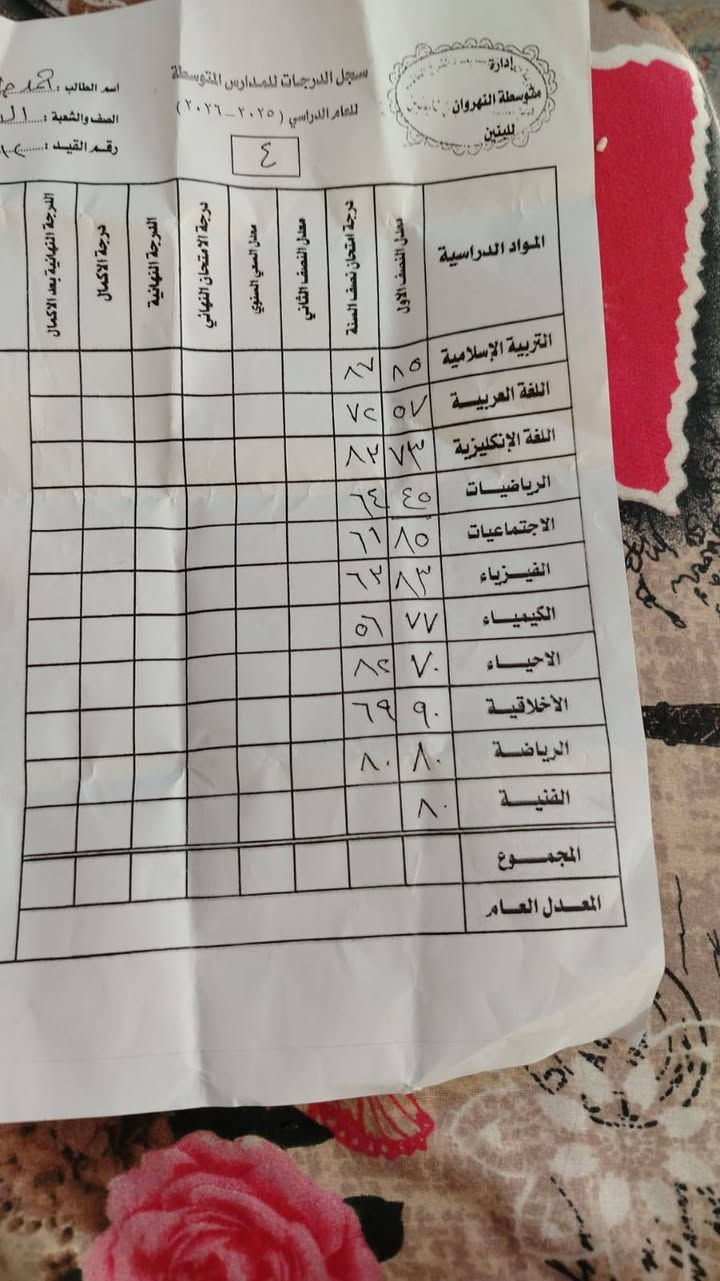 إدارة
متوسطة النهروان
للبنين
سجل الدرجات للمدارس المتوسطة
للعام الدراسي (٢٠٢٥-٢٠٢٦)
٤
اسم الطالب :
الصف والشعبة :
رقم القيد :
المواد الدراسية معدل النصف الاول درجة امتحان نصف السنة معدل النصف الثاني معدل السعي السنوي درجة الامتحان النهائي الدرجة النهائية درجة الاكمال الدرجة النهائية بعد الاكمال
التربية الإسلامية ٨٥ ٨٧
اللغة العربيـــة ٥٧ ٧٢
اللغة الإنكليزية ٧٣ ٨٢
الرياضيـــات ٤٥ ٦٤
الاجتماعيات ٨٥ ٦١
الفيـــزياء ٨٣ ٦٢
الكيميـــاء ٧٧ ٥٦
الاحيـــاء ٧٠ ٨٢
الأخلاقيـة ٩٠ ٦٩
الرياضـــة ٨٠ ٨٠
الفنيـــة ٨٠
المجمـــوع
المعـدل العـام